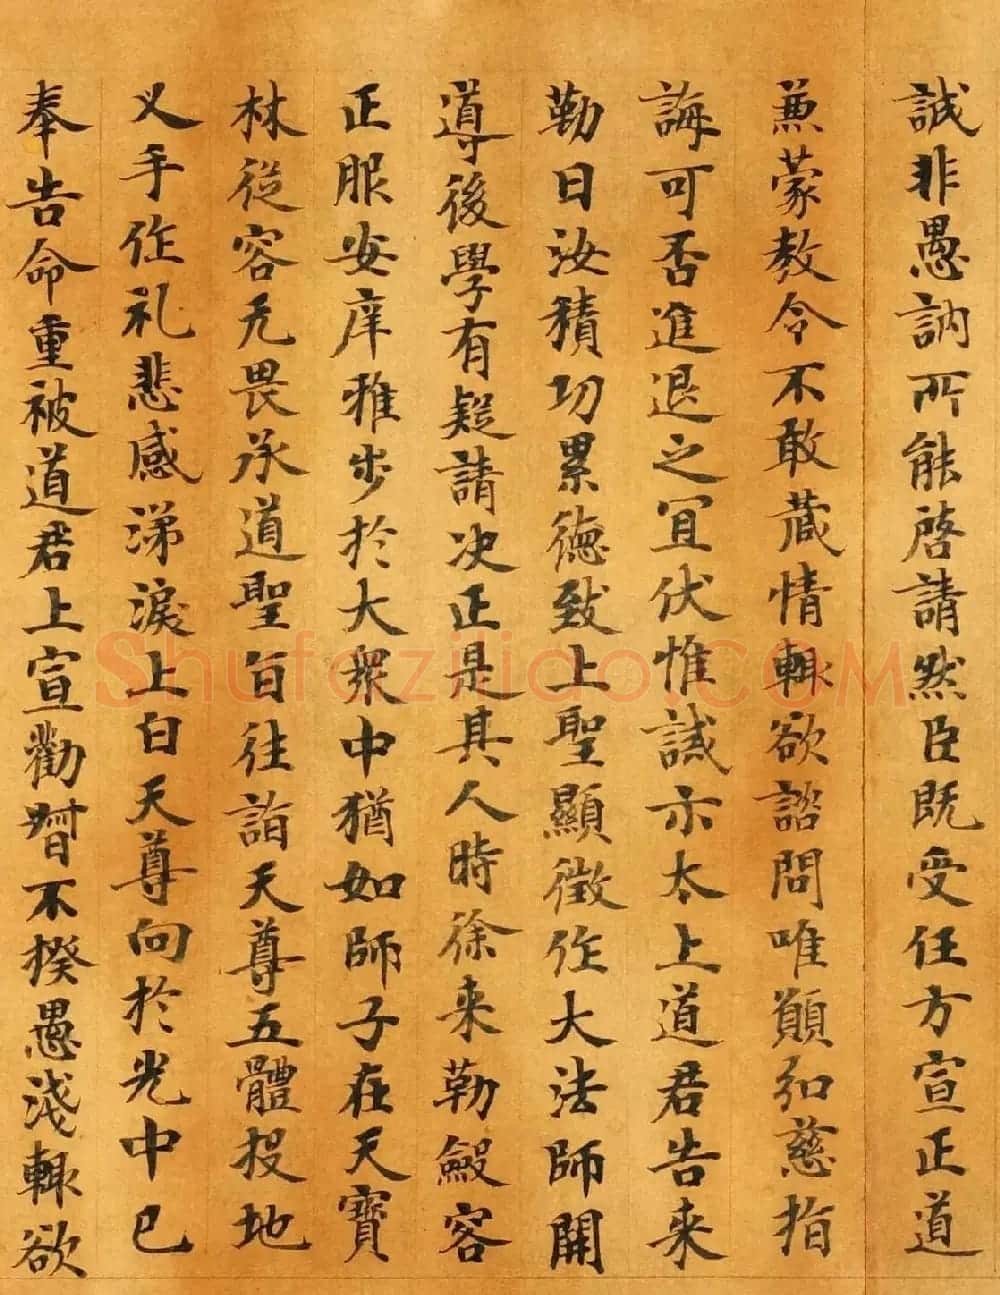 誠非愚訥所能啓請然臣既受任方宣正道
兼蒙教令不敢藏情輙欲諮問唯願弘慈指
誨可否進退之宜伏惟誡示太上道君告来
勒曰汝積功累德致上聖顯徵作大法師開
導後學有疑請决正是其人時徐来勒斂容
正服安庠雅步於大衆中猶如師子在天寶
林從容无畏承道聖旨往詣天尊五體投地
叉手作礼悲感涕淚上白天尊向於光中已
奉告命重被道君上宣勸督不揆愚淺輙欲
Shufaziliao.COM